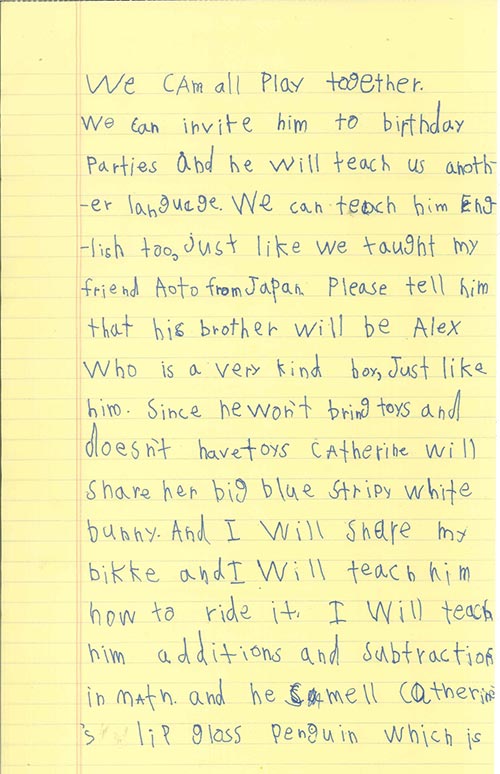 We CAm all Play together.
We can invite him to birthday
Parties and he will teach us anoth-
-er language. We can teach him Eng
-lish too, Just like we taught my
friend Aoto from Japan. Please tell him
that his brother will be Alex
Who is a very kind boy, Just like
him. Since he won't bring toys and
doesn't have toys CAtherine will
share her big blue stripy white
bunny. And I Will share my
bikke and I Will teach him
how to ride it. I Will teach
him additions and subtraction
in mAth. and he smell Catherine
's lip gloss Penguin which is